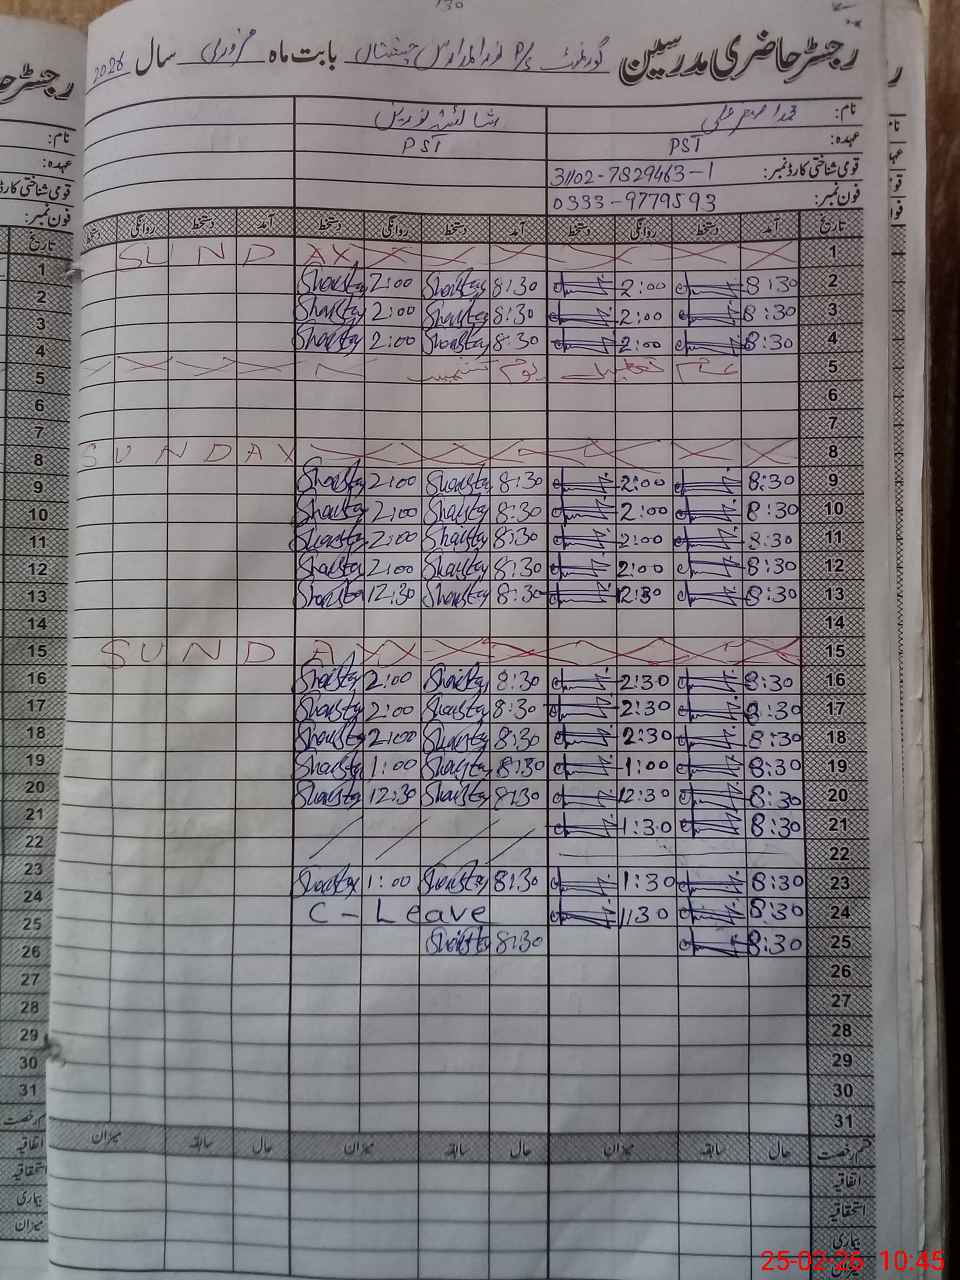 رجسٹر حاضری مدرسین گورنمنٹ P/S بابت ماہ فروری سال 2026
نام:
عہدہ: PST PST
قومی شناختی کارڈ نمبر: 31102-7829463-1
فون نمبر: 0333-9779593
تاریخ آمد دستخط روانگی دستخط آمد دستخط روانگی دستخط آمد دستخط روانگی دستخط
1 SUNDAY
2 8:30 2:00 8:30 Shaista 2:00 Shaista
3 8:30 2:00 8:30 Shaista 2:00 Shaista
4 8:30 2:00 8:30 Shaista 2:00 Shaista
5 عام تعطیل یوم
6
7
8 SUNDAY
9 8:30 2:00 8:30 Shaista 2:00 Shaista
10 8:30 2:00 8:30 Shaista 2:00 Shaista
11 8:30 2:00 8:30 Shaista 2:00 Shaista
12 8:30 2:00 8:30 Shaista 2:00 Shaista
13 8:30 12:30 8:30 Shaista 12:30 Shaista
14
15 SUNDAY
16 8:30 2:30 8:30 Shaista 2:00 Shaista
17 8:30 2:30 8:30 Shaista 2:00 Shaista
18 8:30 2:30 8:30 Shaista 2:00 Shaista
19 8:30 1:00 8:30 Shaista 1:00 Shaista
20 8:30 12:30 8:30 Shaista 12:30 Shaista
21 8:30 1:30
22
23 8:30 1:30 8:30 Shaista 1:00 Shaista
24 8:30 1:30 C-Leave
25 8:30 8:30 Shaista
26
27
28
29
30
31
قسم رخصت حال سابقہ میزان حال سابقہ میزان حال سابقہ میزان
اتفاقیہ
استحقاقیہ
بیماری
میزان
25-02-26 10:45